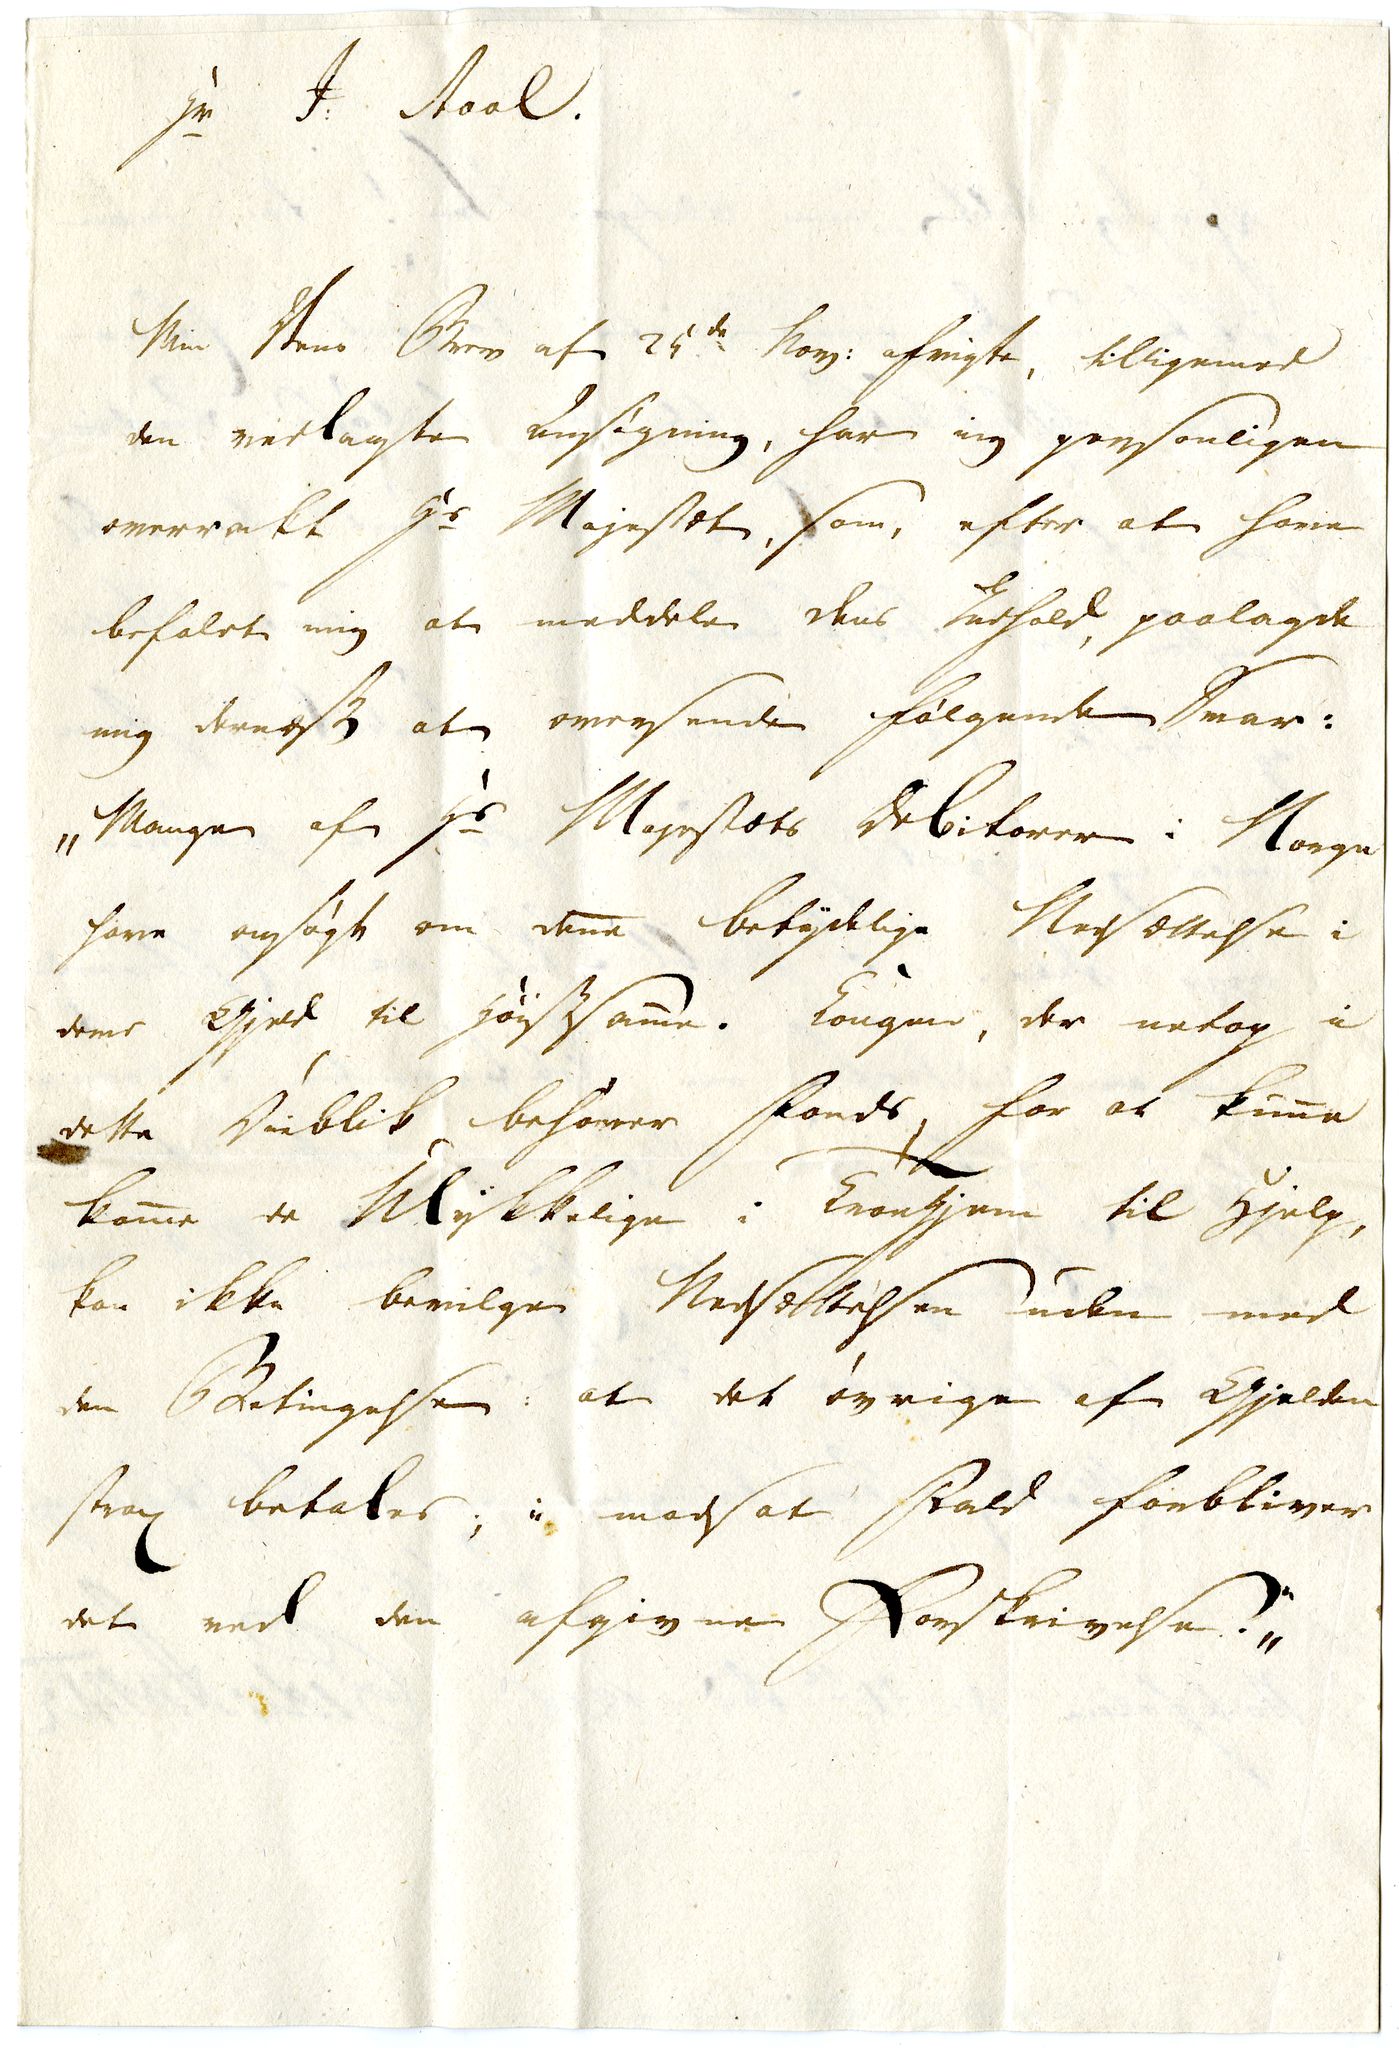 Hr J: Aaal.
Min Vens Brev af 25de Nov: afvigte, tilligemed
den vedlagte Ansøgning, har jeg personligen
overrakt Hs Majestæt, som, efter at have
befalet mig at meddele dens Indhold, paalagde
mig dernæst at oversende følgende Svar:
„Mange af Hs Majestæts Debitorer i Norge
have ansøgt om denne betydelige Nedsættelse i
deres Gjeld til Høistsamme. Kongen, der netop i
dette Øieblik behøver Fonds, for at kunne
komme de Ulykkelige i Trondhjem til Hjelp,
kan ikke bevilge Nedsættelsen uden med
den Betingelse: at det øvrige af Gjelden
strax betales; i modsat Fald forbliver
det ved den afgivne Forskrivelse."„